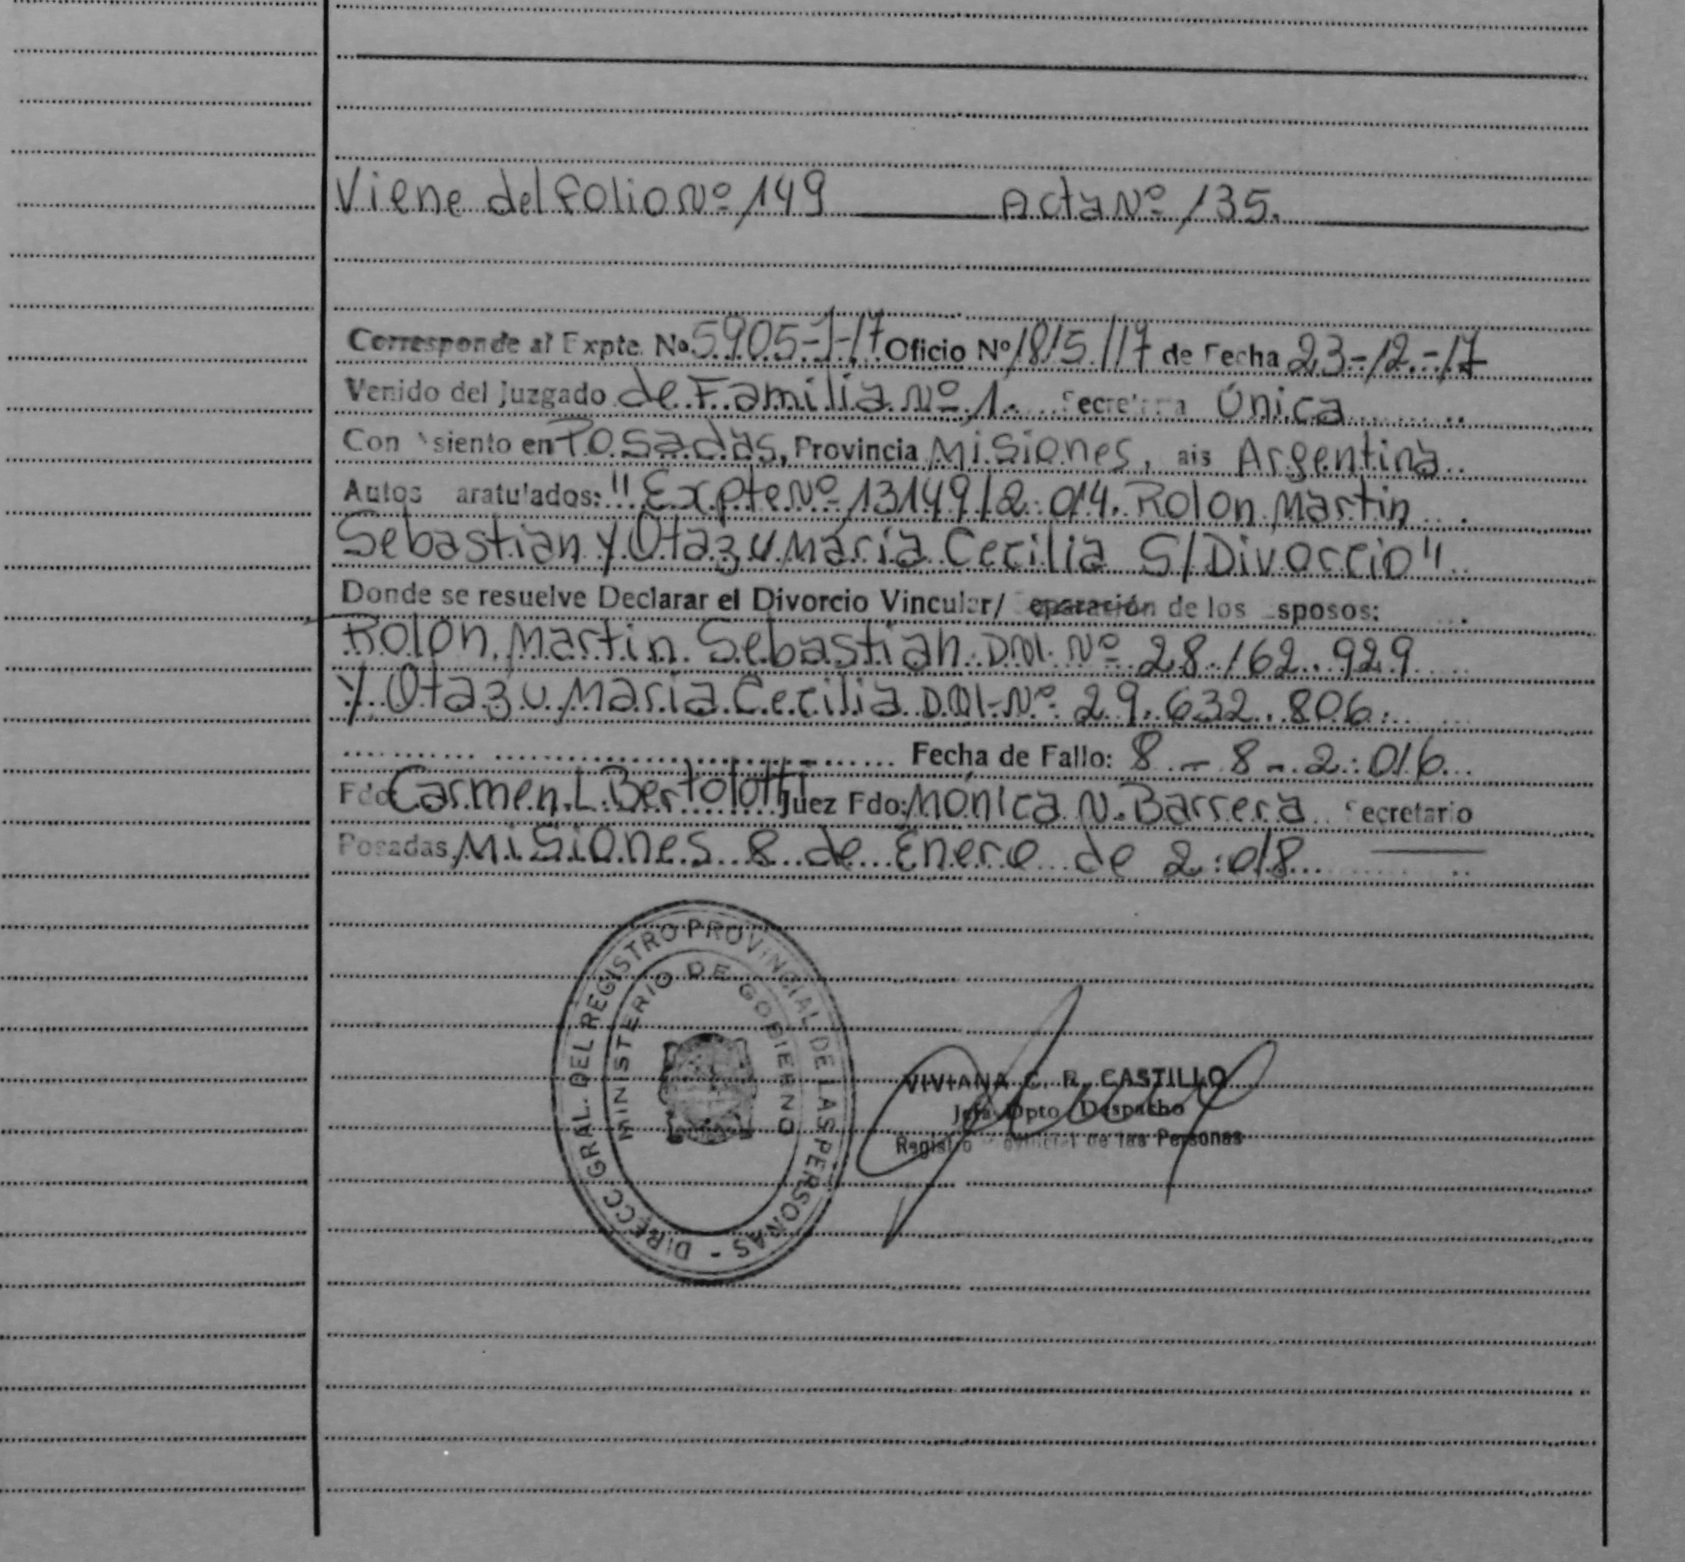 Viene del folio Nº 149 Acta Nº 135.
Corresponde al Expte. Nº 5905-J-17 Oficio Nº 1815/17 de Fecha 23-12-17
Venido del Juzgado de Familia Nº 1. Única
Con siento en Posadas, Provincia Misiones, ais Argentina
Autos aratulados: "Expte Nº 13149/2.014. Rolon Martin
Sebastian y Otazu Maria Cecilia S/Divorcio"
Donde se resuelve Declarar el Divorcio Vincular/ eparación de los sposos:
Rolon, Martin Sebastian D.N.I. Nº 28.162.929
y Otazu, Maria Cecilia D.N.I. Nº 29.632.806.
Fecha de Fallo: 8-8-2.016
Fdo Carmen L. Bertolotti Juez Fdo: Mónica N. Barrera ecretario
Posadas, Misiones 8 de Enero de 2.018
DIRECC. GRAL. DEL REGISTRO PROVINCIAL DE LAS PERSONAS -
MINISTERIO DE GOBIERNO
VIVIANA C. R. CASTILLO
Jefa Dpto Despacho
Registro de las Personas